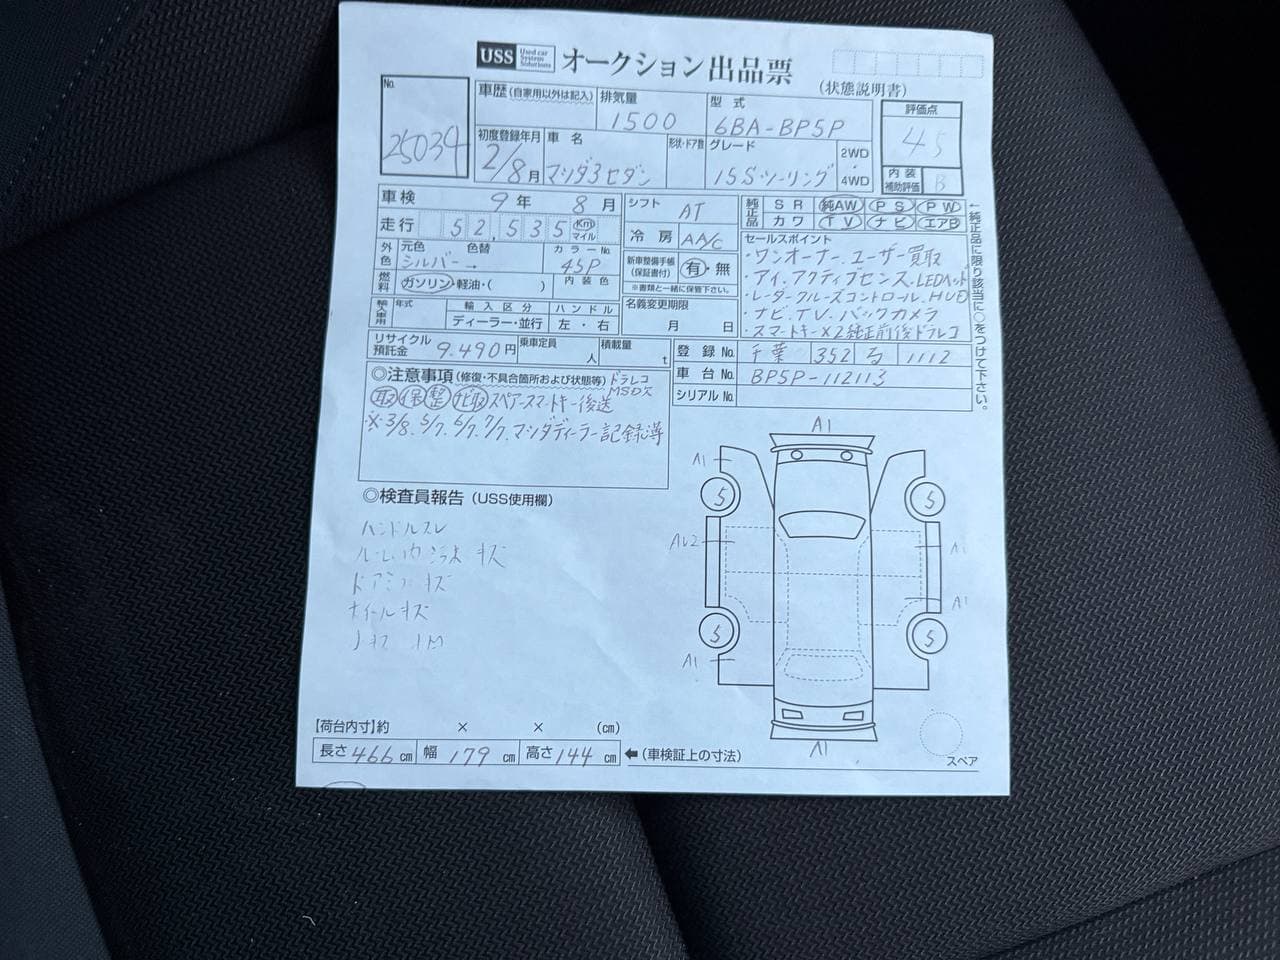 USS Used car System Solutions オークション出品票
(状態説明書)
No. 25039
車歴 (自家用以外は記入)
排気量 1500
型式 6BA-BP5P
評価点 4.5
初度登録年月 2/8月
車名 マツダ3セダン
形状・ドア数
グレード 15Sツーリング
2WD・4WD
内装補助評価 B
車検 9年 8月
シフト AT
純正品 SR 純AW PS PW
カワ TV ナビ エアB
←純正品に限り該当に○をつけて下さい。
走行 52,535 Km マイル
冷房 AA/C
外色 元色 シルバー → 色替
カラーNo. 45P
燃料 ガソリン・軽油・( )
内装色
新車整備手帳(保証書付) 有・無
※書類と一緒に保管下さい。
セールスポイント
・ワンオーナー.ユーザー買取
・アイ.アクティブセンス.LEDヘッド
・レーダークルーズコントロール.HUD
・ナビ.TV.バックカメラ
・スマートキー×2 純正前後ドラレコ
輸入車用 年式 輸入区分 ハンドル
ディーラー・並行 左・右
名義変更期限 月 日
リサイクル預託金 9.490円
乗車定員 人
積載量 t
登録No. 千葉 352 る 1112
車台No. BP5P-112113
シリアルNo.
◎注意事項 (修復・不具合箇所および状態等) ドラレコ
MSD欠
取 保 整 スペアースマートキー後送
※3/8.5/7.6/7.7/7.マツダディーラー記録簿
◎検査員報告 (USS使用欄)
ハンドルスレ
キズ
ドアミラーキズ
ホイールキズ
A1
A1
5 5
A1
A1
5 5
A1
A1
スペア
【荷台内寸】約 × × (cm)
長さ 466 cm 幅 179 cm 高さ 144 cm ←(車検証上の寸法)